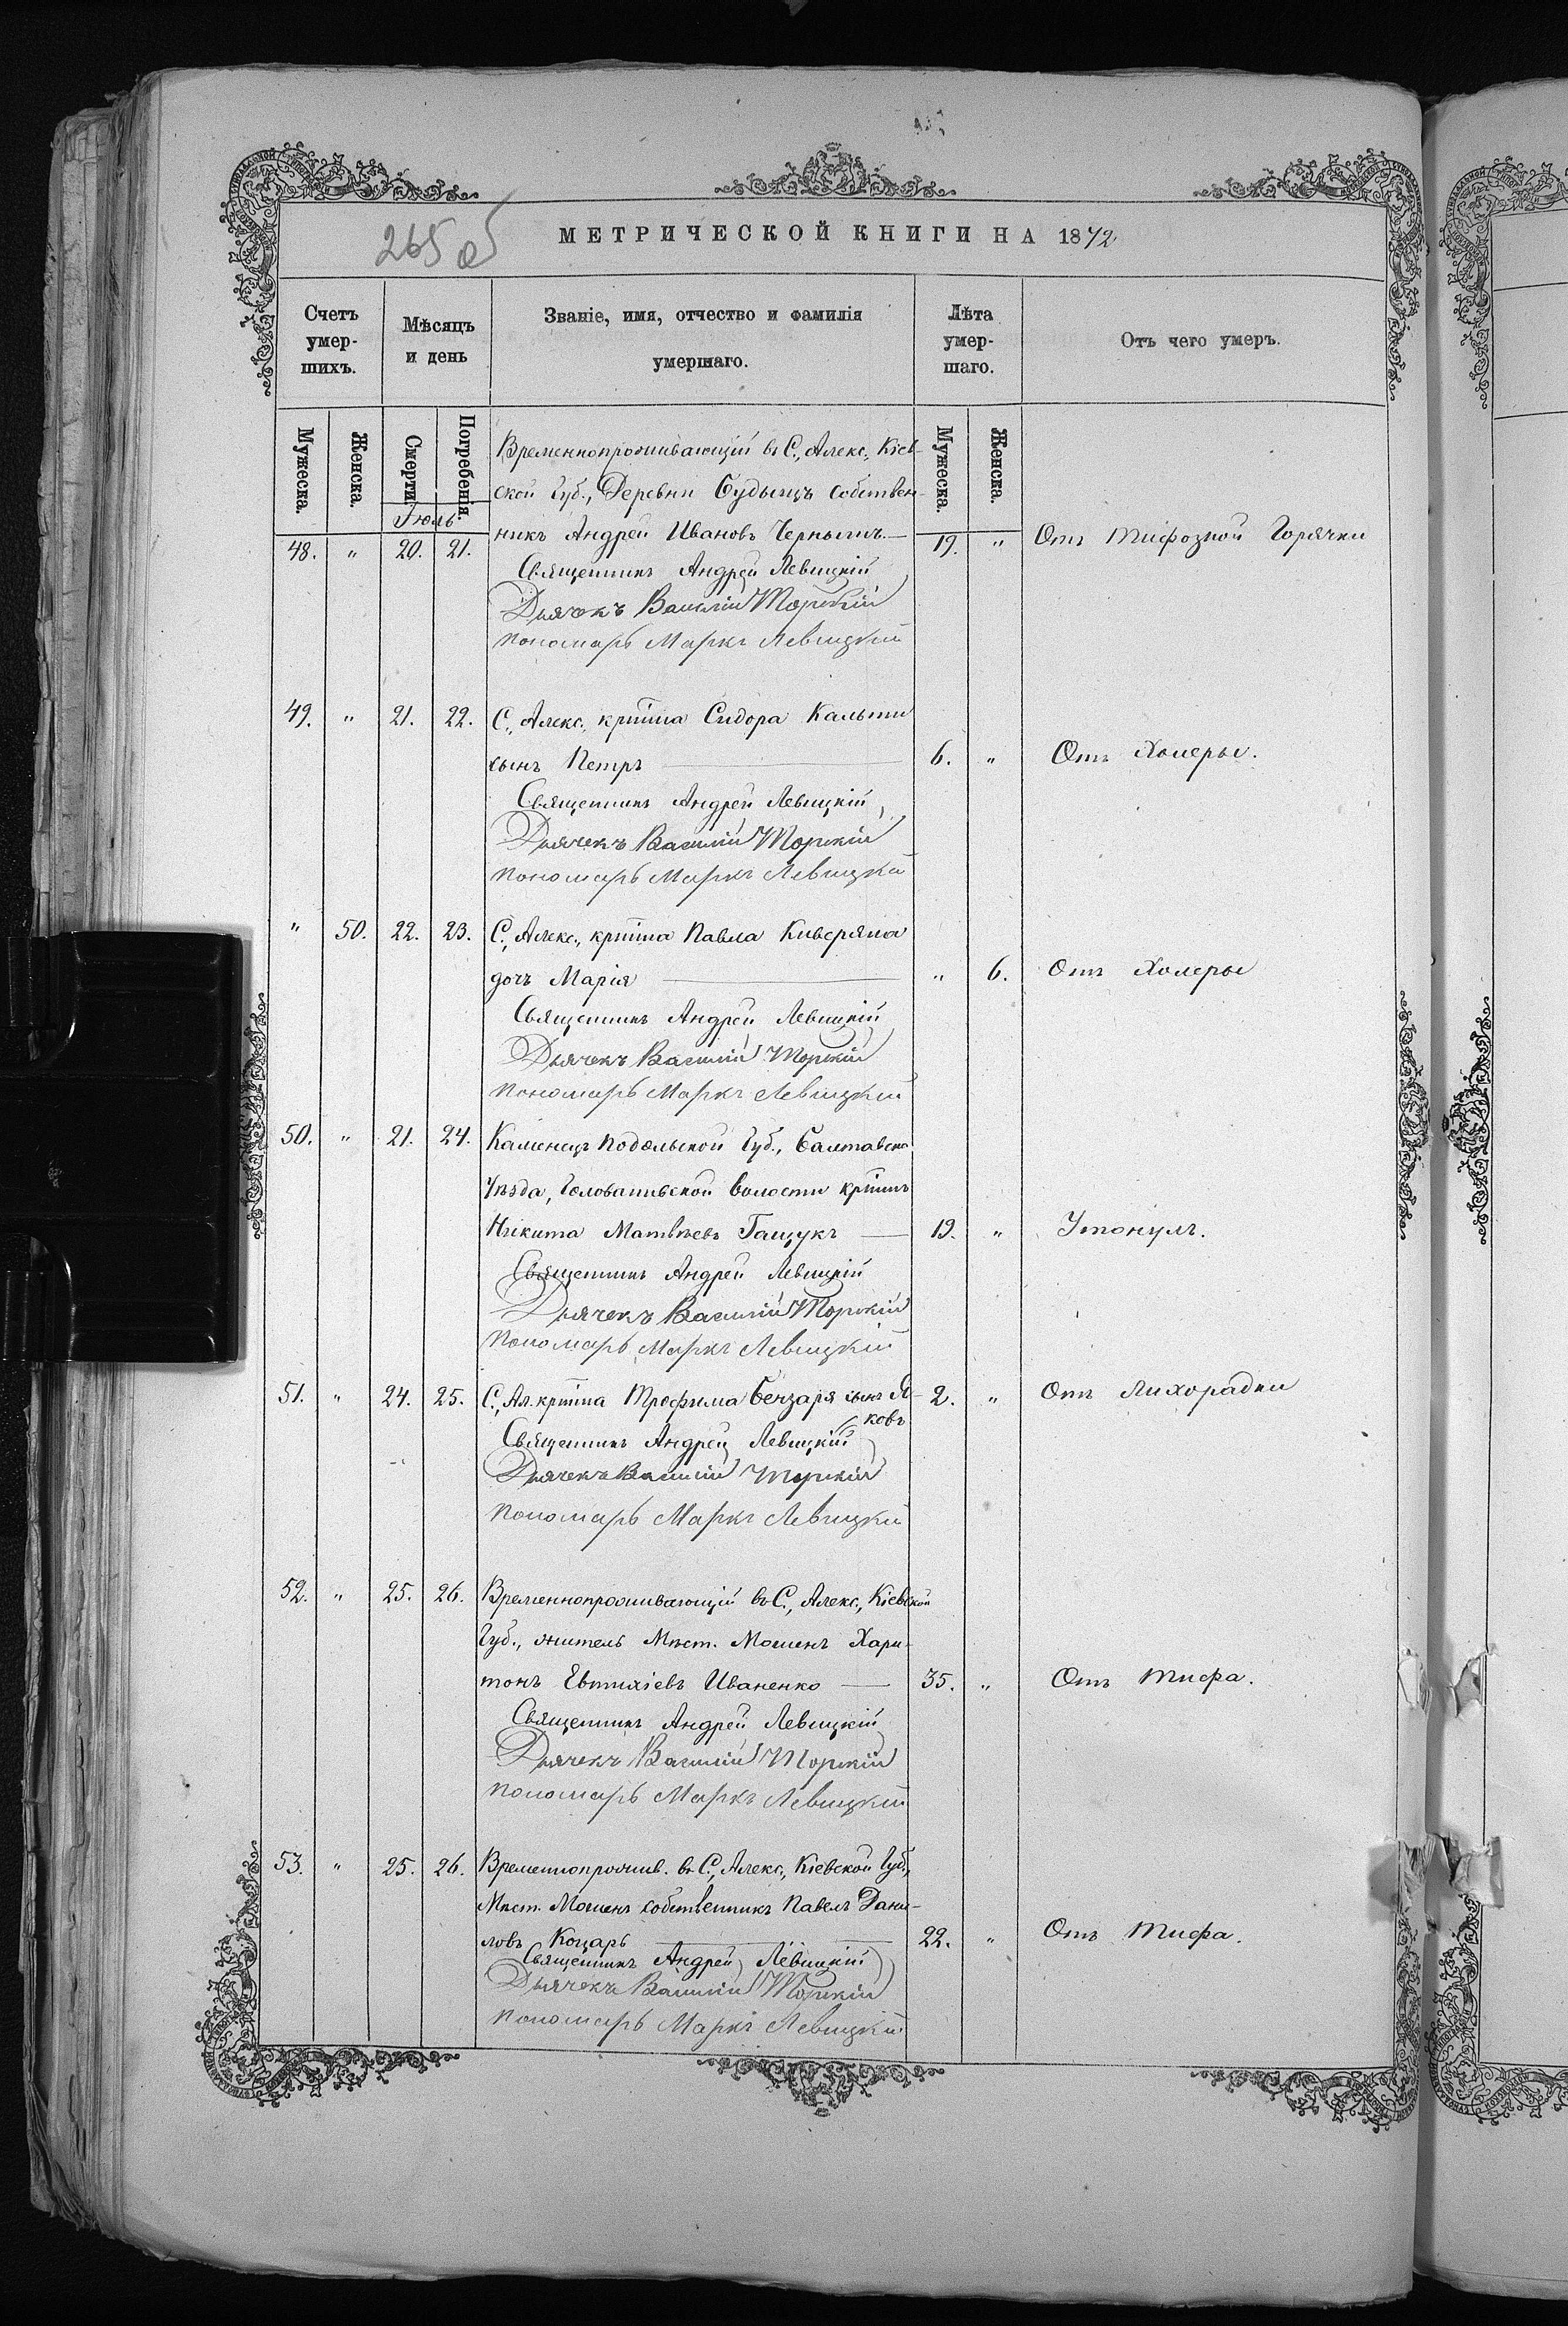 265 об
МЕТРИЧЕСКОЙ КНИГИ НА 1872
Счетъ умер-шихъ.
Мѣсяцъ и день
Званіе, имя, отчество и фамилія умершаго.
Лѣта умер-шаго.
Отъ чего умеръ.
Мужеска.
Женска.
Смерти.
Погребенія.
Мужеска.
Женска.
Іюль
Временнопроживающій въ С., Алекс., Кіев-
ской Губ., Деревни Будыщъ собствен-
48. " 20. 21. никъ Андрей Ивановъ 19. " Отъ Тифозной Горячки
Священникъ Андрей Левицкій
Дьячекъ Василій Торскій
Пономарь Маркъ Левицкій
49. " 21. 22. С., Алекс., крт̃іна Сидора
сынъ Петръ 6. " Отъ Холеры.
Священникъ Андрей Левицкій
Дьячекъ Василій Торскій
Пономарь Маркъ Левицкій
" 50. 22. 23. С., Алекс., крт̃іна Павла Киверяна
дочь Марія " 6. Отъ Холеры
Священникъ Андрей Левицкій
Дьячекъ Василій Торскій
Пономарь Маркъ Левицкій
50. " 21. 24. Каменецъ Подольской Губ., Балтавско
Уѣзда, волости крт̃інъ
Никита Матвѣевъ Гащукъ 19. " Утонулъ.
Священникъ Андрей Левицкій
Дьячекъ Василій Торскій
Пономарь Маркъ Левицкій
51. " 24. 25. С., Ал. крт̃іна Трофима Бензаря сынъ Я- 2. " Отъ Лихорадки
ковъ
Священникъ Андрей Левицкій
Дьячекъ Василій Торскій
Пономарь Маркъ Левицкій
52. " 25. 26. Временнопроживающій въ С., Алекс., Кіевской
Губ., житель Мѣст. Мошенъ Хари-
тонъ Евтихіевъ Иваненко 35. " Отъ Тифа.
Священникъ Андрей Левицкій
Дьячекъ Василій Торскій
Пономарь Маркъ Левицкій
53. " 25. 26. Временнопрожив. въ С., Алекс., Кіевской Губ.,
Мѣст. Мошенъ собственникъ Павелъ Дани-
ловъ Коцарь 22. " Отъ Тифа.
Священникъ Андрей Левицкій
Дьячекъ Василій Торскій
Пономарь Маркъ Левицкій